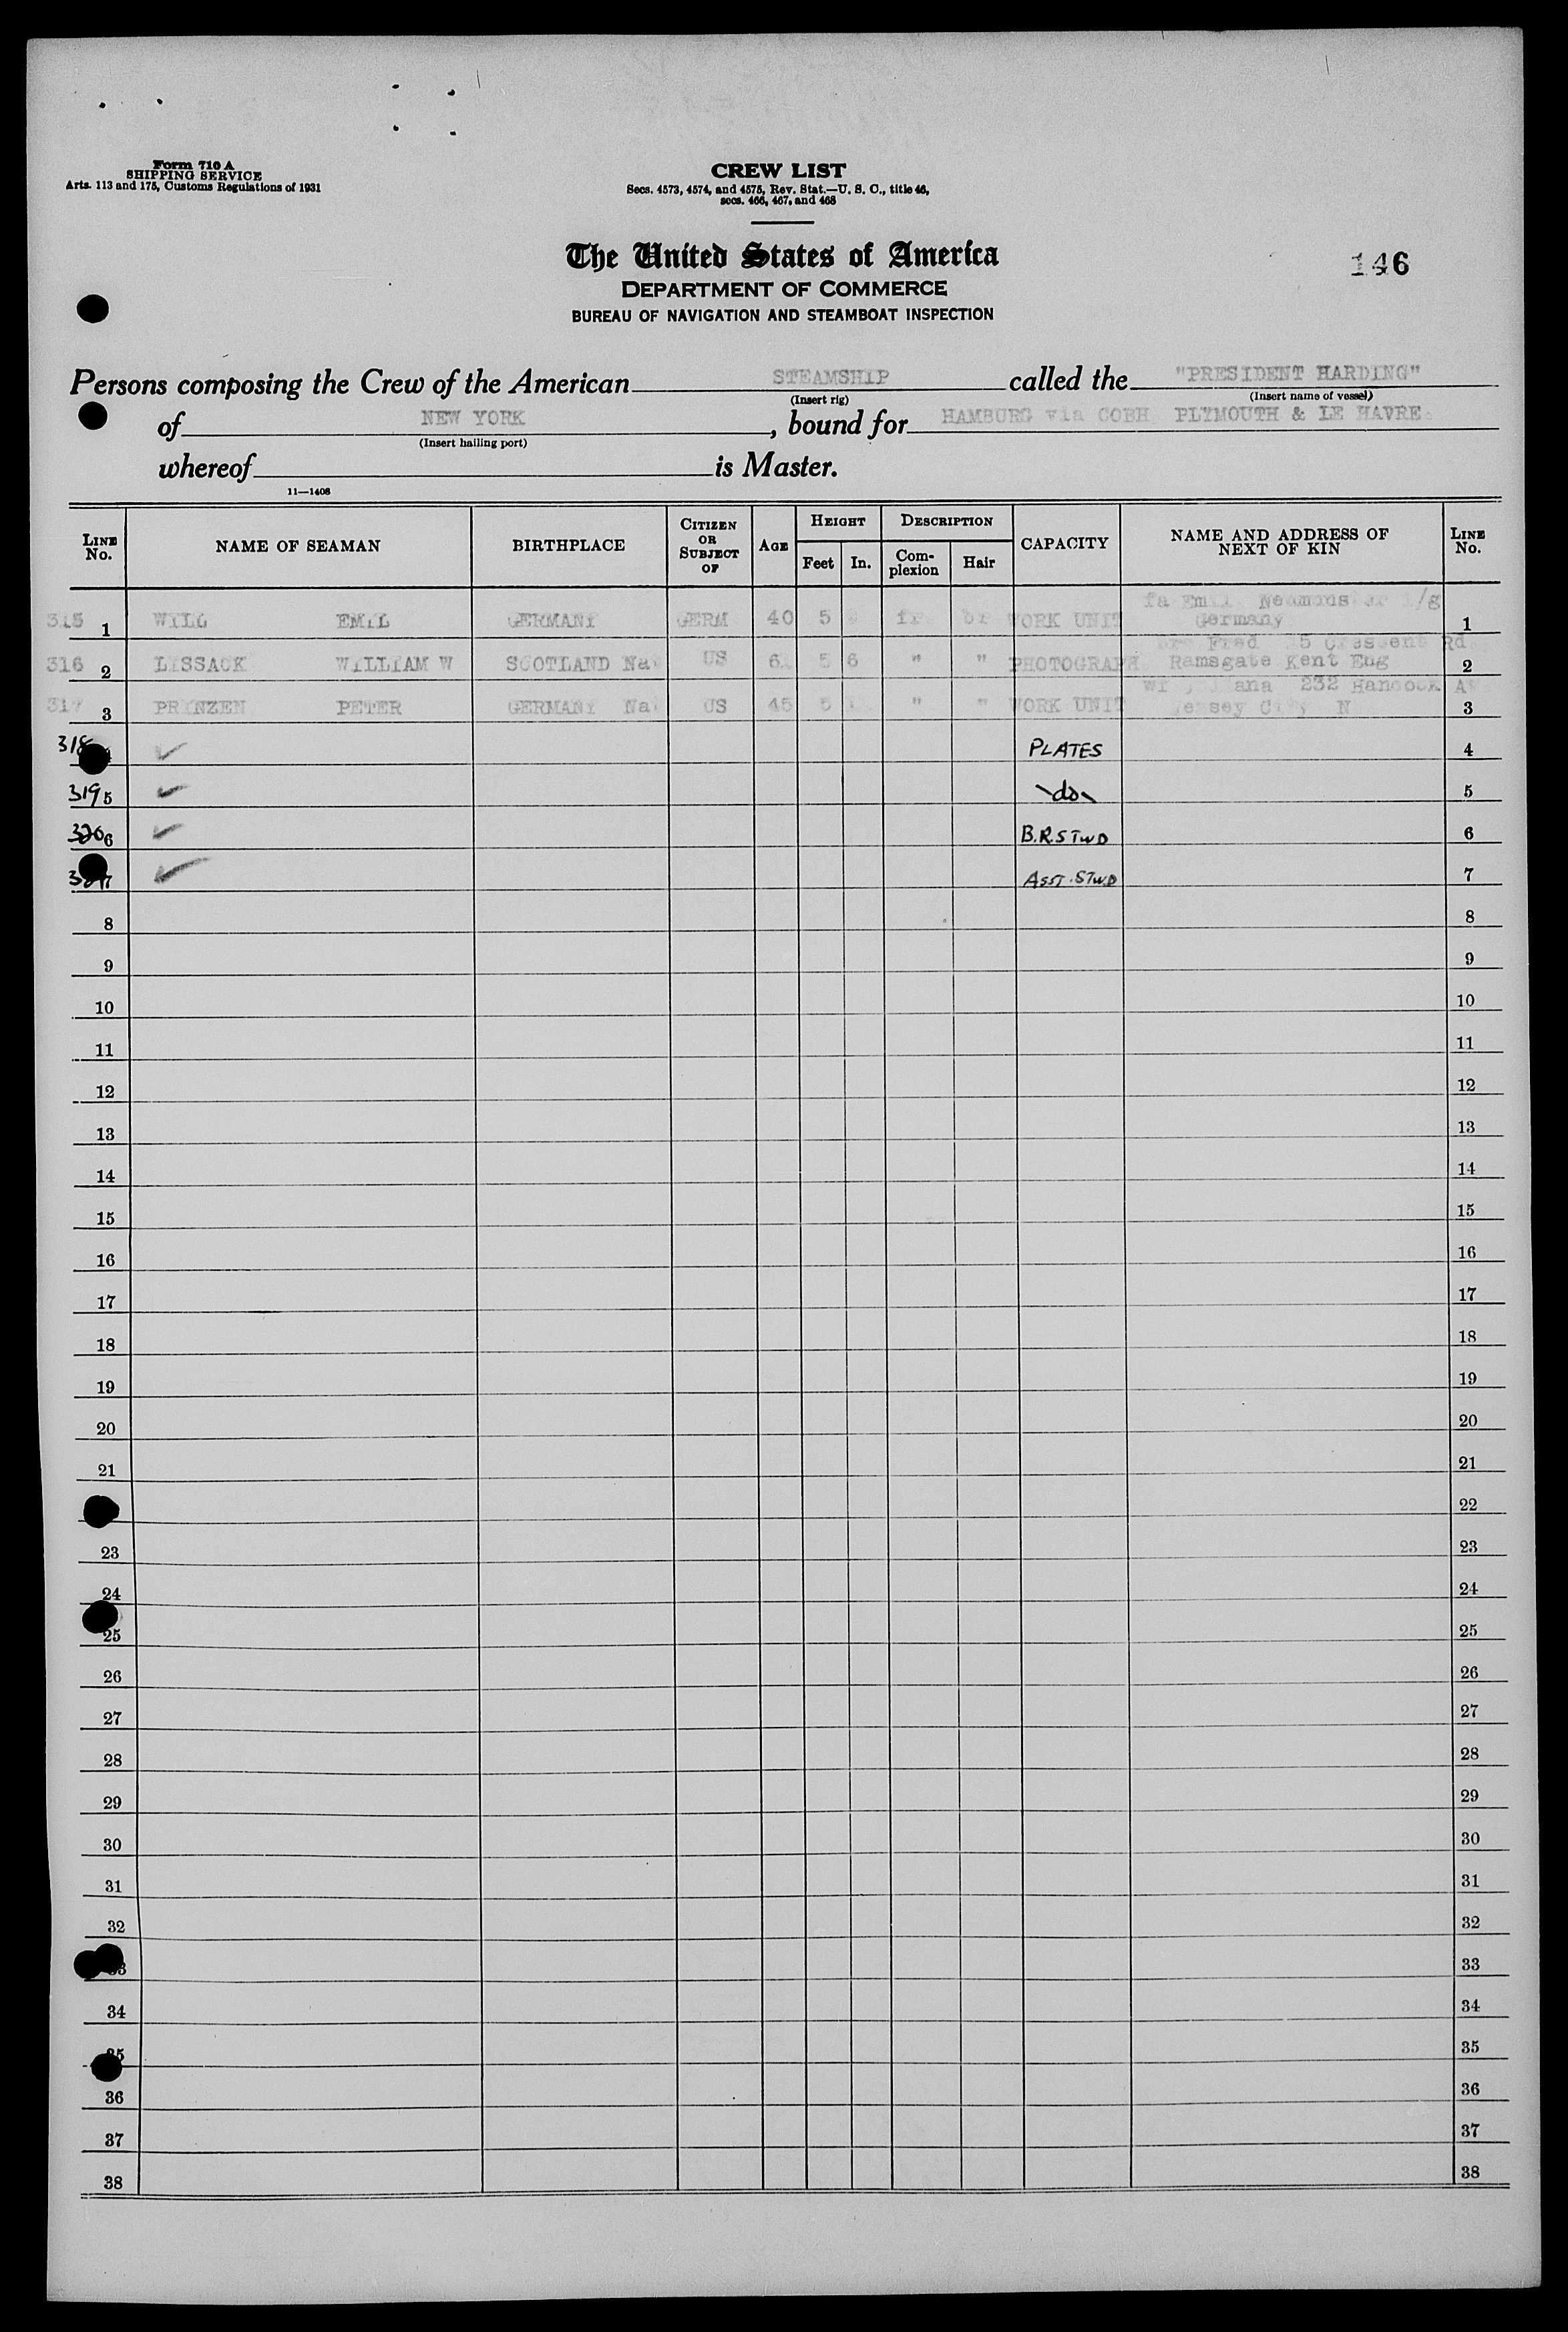 Form 710 A
SHIPPING SERVICE
Arts. 113 and 175, Customs Regulations of 1931
CREW LIST
Secs. 4573, 4574, and 4575, Rev. Stat.—U. S. C., title 46,
secs. 466, 467, and 468
The United States of America
DEPARTMENT OF COMMERCE
BUREAU OF NAVIGATION AND STEAMBOAT INSPECTION
146
Persons composing the Crew of the American STEAMSHIP called the "PRESIDENT HARDING"
(Insert rig) (Insert name of vessel)
of NEW YORK, bound for HAMBURG via COBH PLYMOUTH & LE HAVRE
(Insert hailing port)
whereof is Master.
11—1408
LINE No. NAME OF SEAMAN BIRTHPLACE CITIZEN OR SUBJECT OF AGE HEIGHT Feet In. DESCRIPTION Complexion Hair CAPACITY NAME AND ADDRESS OF NEXT OF KIN LINE No.
fa Emil
315 1 WILL EMIL GERMANY GERM 40 5 fr br WORK UNIT Germany 1
Fred Crescent Rd
316 2 LISSACK WILLIAM W SCOTLAND Na US 5 6 " " PHOTOGRAPH Ramsgate Kent Eng 2
232 Hancock Av
317 3 PRINZEN PETER GERMANY Na US 45 5 " " WORK UNIT Jersey City N 3
318 ✓ PLATES 4
319 5 ✓ -do- 5
320 6 ✓ B.R STWD 6
✓ ASST. STWD 7
8 8
9 9
10 10
11 11
12 12
13 13
14 14
15 15
16 16
17 17
18 18
19 19
20 20
21 21
22
23 23
24 24
25 25
26 26
27 27
28 28
29 29
30 30
31 31
32 32
33 33
34 34
35 35
36 36
37 37
38 38